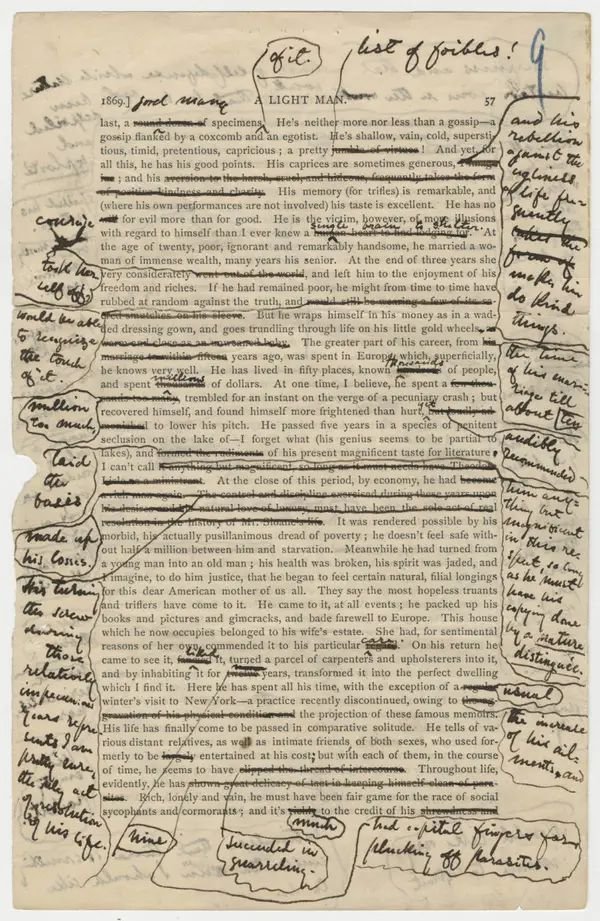 of it.
list of foibles!
9
1869.] good many A LIGHT MAN. 57
last, a round dozen of specimens. He's neither more nor less than a gossip—a
gossip flanked by a coxcomb and an egotist. He's shallow, vain, cold, supersti-
tious, timid, pretentious, capricious; a pretty jumble of virtues! And yet, for
all this, he has his good points. His caprices are sometimes generous,
; and his aversion to the harsh, cruel, and hideous, frequently takes the form
of positive kindness and charity. His memory (for trifles) is remarkable, and
(where his own performances are not involved) his taste is excellent. He has no
for evil more than for good. He is the victim, however, of more illusions
single brain to shelter.
with regard to himself than I ever knew a human heart to find lodging for. At
the age of twenty, poor, ignorant and remarkably handsome, he married a wo-
man of immense wealth, many years his senior. At the end of three years she
very considerately went out of the world, and left him to the enjoyment of his
freedom and riches. If he had remained poor, he might from time to time have
rubbed at random against the truth, and would still be wearing a few of its
smutches on his sleeve. But he wraps himself in his money as in a wad-
ded dressing gown, and goes trundling through life on his little gold wheels,
The greater part of his career, from his
marriage to within fifteen years ago, was spent in Europe, which, superficially,
thousands
he knows very well. He has lived in fifty places, known of people,
millions
and spent of dollars. At one time, I believe, he spent a few thou-
sands too many, trembled for an instant on the verge of a pecuniary crash; but
recovered himself, and found himself more frightened than hurt, yet
to lower his pitch. He passed five years in a species of penitent
seclusion on the lake of—I forget what (his genius seems to be partial to
lakes), and formed the rudiments of his present magnificent taste for literature;
I can't call it anything but magnificent, so long as it must needs have Theodore
Lisle as a ministrant. At the close of this period, by economy, he had become
a rich man again. The control and discipline exercised during these years upon
his desires and his natural love of luxury, must have been the sole act of real
resolution in the history of Mr. Sloane's life. It was rendered possible by his
morbid, his actually pusillanimous dread of poverty; he doesn't feel safe with-
out half a million between him and starvation. Meanwhile he had turned from
a young man into an old man; his health was broken, his spirit was jaded, and
I imagine, to do him justice, that he began to feel certain natural, filial longings
for this dear American mother of us all. They say the most hopeless truants
and triflers have come to it. He came to it, at all events; he packed up his
books and pictures and gimcracks, and bade farewell to Europe. This house
which he now occupies belonged to his wife's estate. She had, for sentimental
reasons of her own, commended it to his particular care. On his return he
liked
came to see it, it, turned a parcel of carpenters and upholsterers into it,
and by inhabiting it for years, transformed it into the perfect dwelling
which I find. Here he has spent all his time, with the exception of a regular
winter's visit to New York—a practice recently discontinued, owing to
of his physical condition and the projection of these famous memoirs.
His life has finally come to be passed in comparative solitude. He tells of va-
rious distant relatives, as well as intimate friends of both sexes, who used for-
merly to be largely entertained at his cost; but with each of them, in the course
of time, he seems to have slipped the thread of intercourse. Throughout life,
evidently, he has shown great delicacy of tact in keeping himself clean of para-
sites. Rich, lonely and vain, he must have been fair game for the race of social
sycophants and cormorants; and it's to the credit of his shrewdness and
much
courage
took her
self off
would be able
to recognize
the touch
of it.
million
too much,
laid
the
bases
made up
his losses.
His turning
the screw
during
those
relatively
impecunious
years repre-
sents I am
pretty sure,
the only act
of resolution
of his life.
nine
succeeded in
quarreling.
and his
rebellion
against the
ugliness
of life fre-
quently
takes the
form of
makes him
do kind
things.
the time
of his mar-
riage till
about ten
audibly
recommended
him any-
thing but
magnificent
in this re-
spect, so long
as he must
have his
copying done
by a nature
distinguée.
usual
the increase
of his ail-
ments, and
had capital fingers for
plucking off parasites.